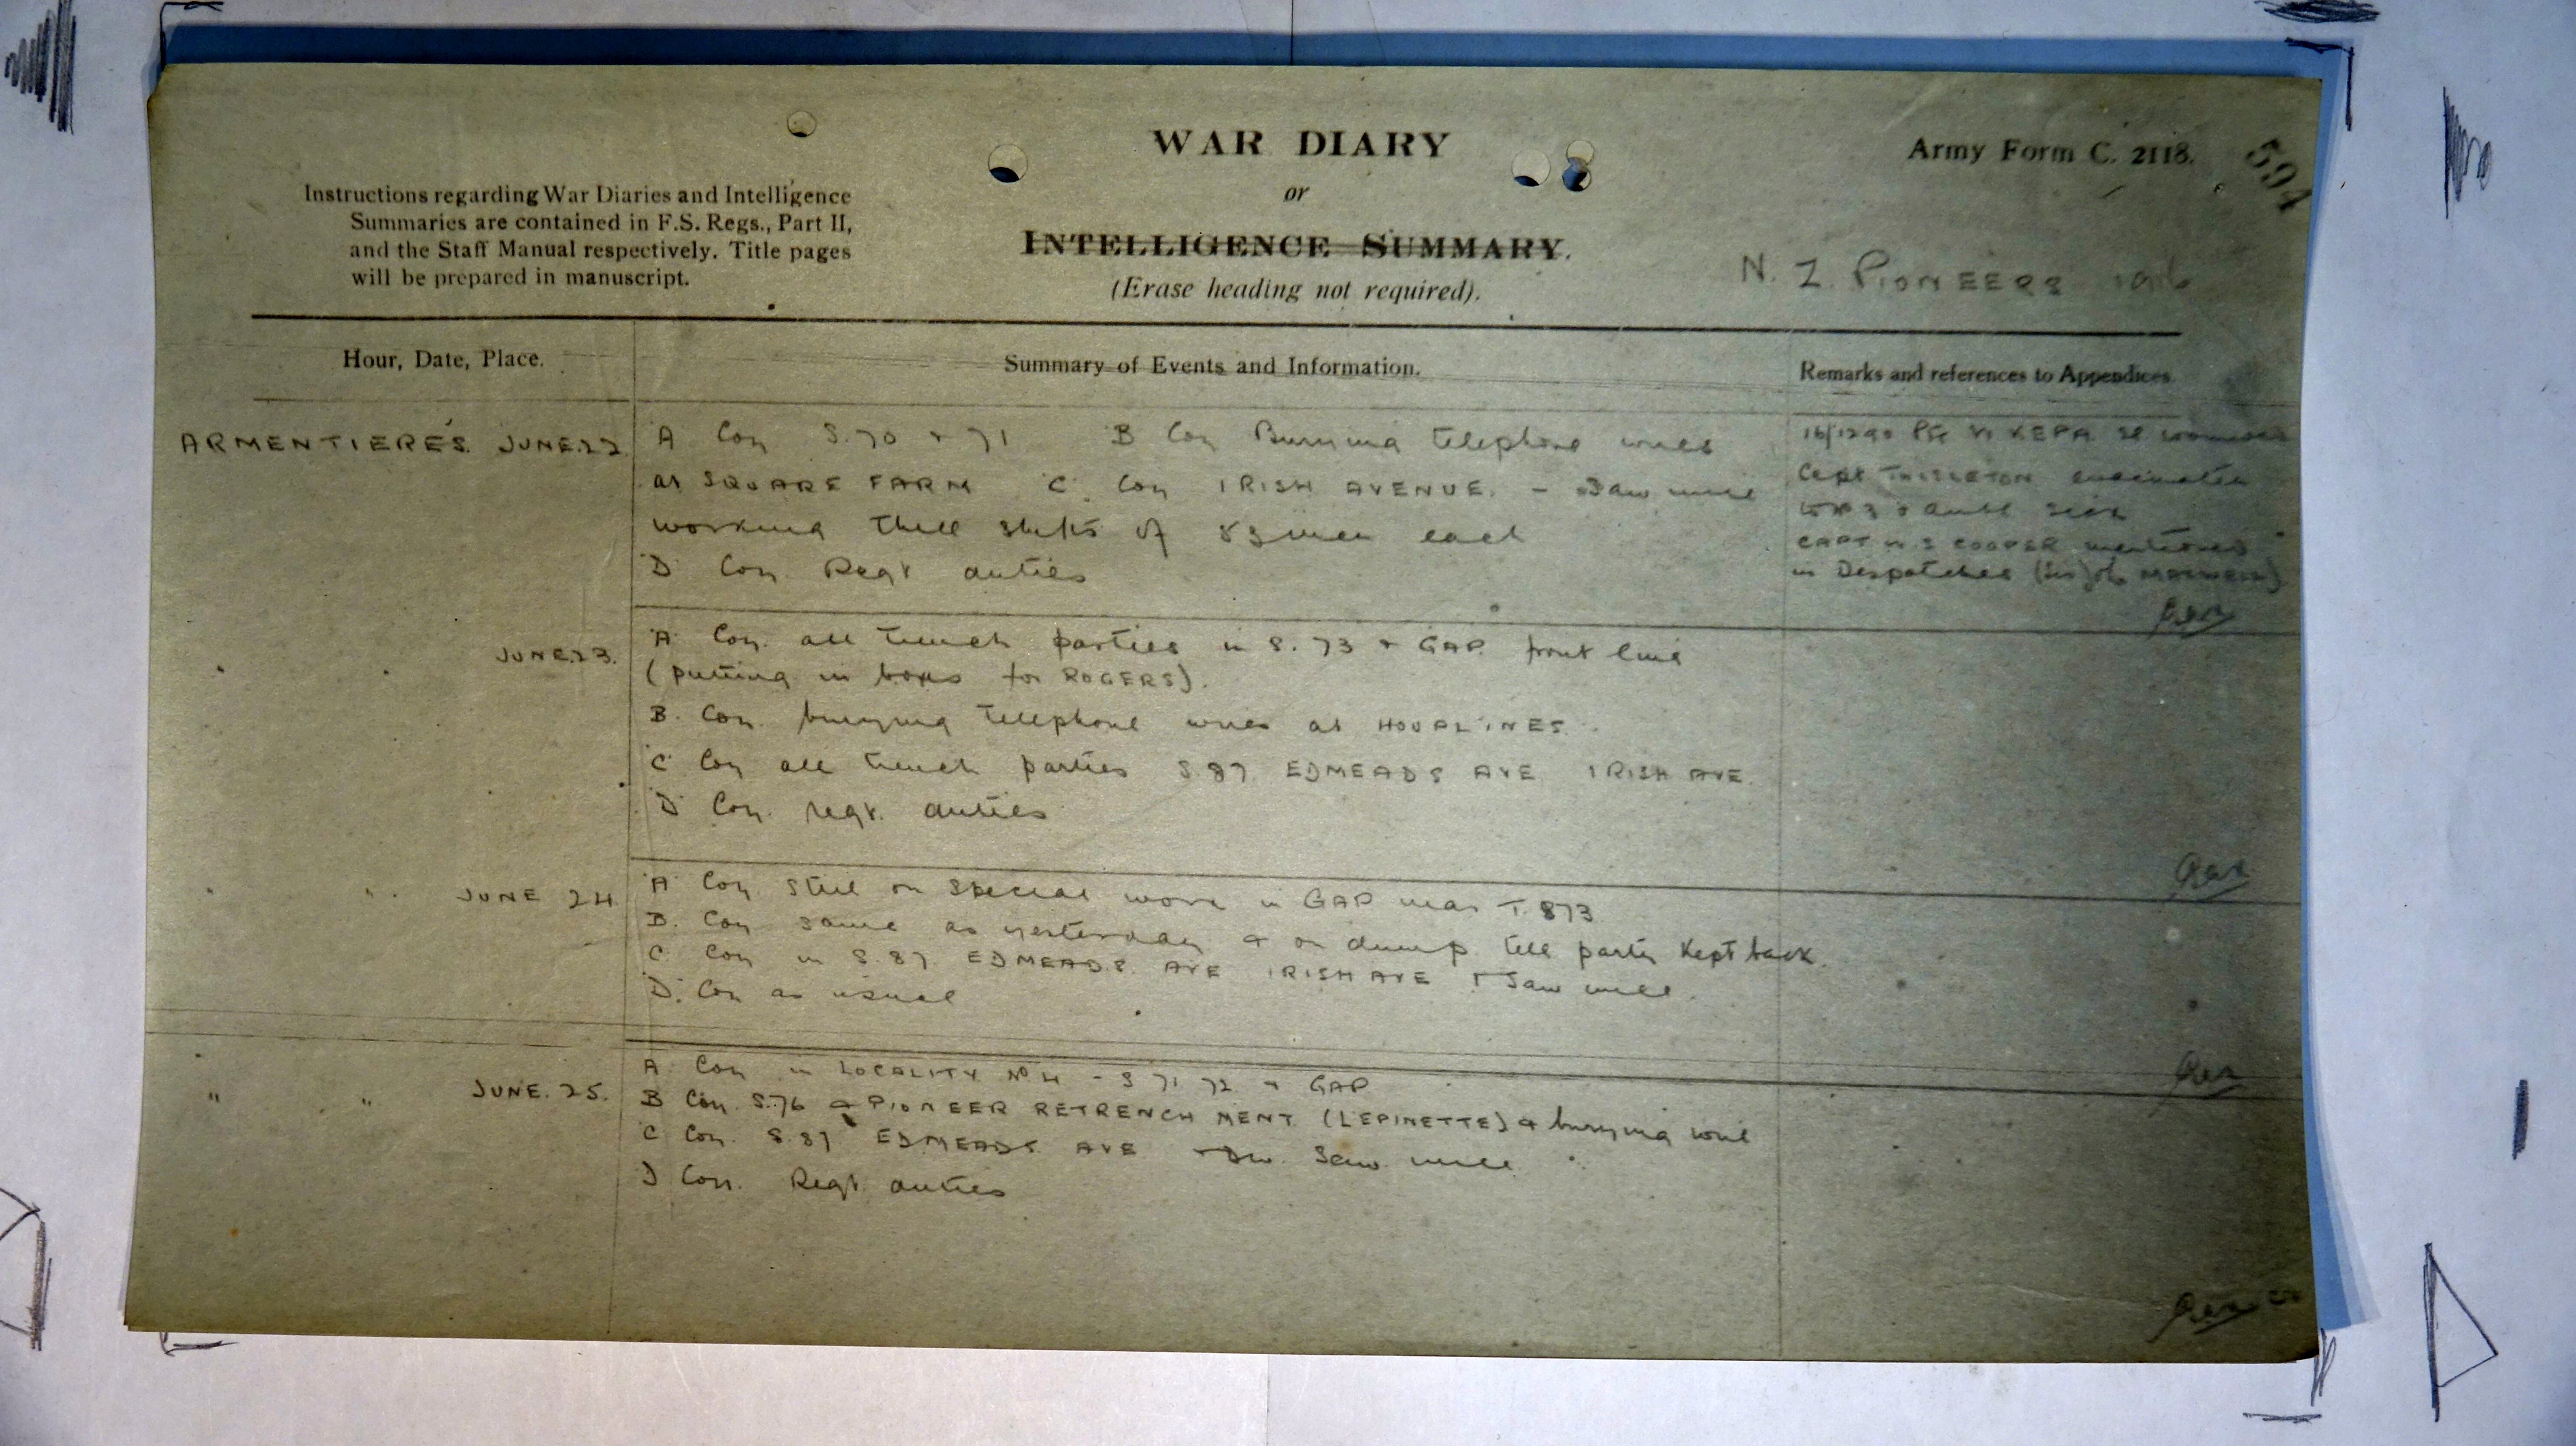 WAR DIARY
or
INTELLIGENCE SUMMARY.
(Erase heading not required).
Army Form C. 2118.
594
Instructions regarding War Diaries and Intelligence
Summaries are contained in F.S. Regs., Part II,
and the Staff Manual respectively. Title pages
will be prepared in manuscript.
N. Z. PIONEERS 1916
Hour, Date, Place.
Summary of Events and Information.
Remarks and references to Appendices
ARMENTIERES. JUNE.22
A Coy S.70 + 71 B Coy Burying telephone wires
at SQUARE FARM C. Coy IRISH AVENUE. - Saw mill
working three shifts of 83 men each
D Coy. Regt duties
16/1290 Pte KEPA wounded
Capt evacuated
sick
CAPT COOPER mentioned
in Despatches
JUNE.23.
A Coy. all trench parties in S.73 + GAP. front line
(putting in boxes for ROGERS).
B. Coy. burying telephone wires at HOUPLINES.
C Coy all trench parties S.87 EDMEADS AVE IRISH AVE.
D Coy. regt. duties
" " JUNE 24
A Coy. still on special work in GAP near T.873
B. Coy same as yesterday & on dump. tell party kept back.
C Coy in S.87. EDMEADS. AVE IRISH AVE + Saw mill.
D. Coy as usual
" " JUNE. 25.
A Coy in LOCALITY No 4 - S 71 72 + GAP
B Coy. S.76 & PIONEER RETRENCHMENT. (LEPINETTE) & burying wire
C Coy. S.87 EDMEADS AVE Saw. mill
D Coy. Regt. duties